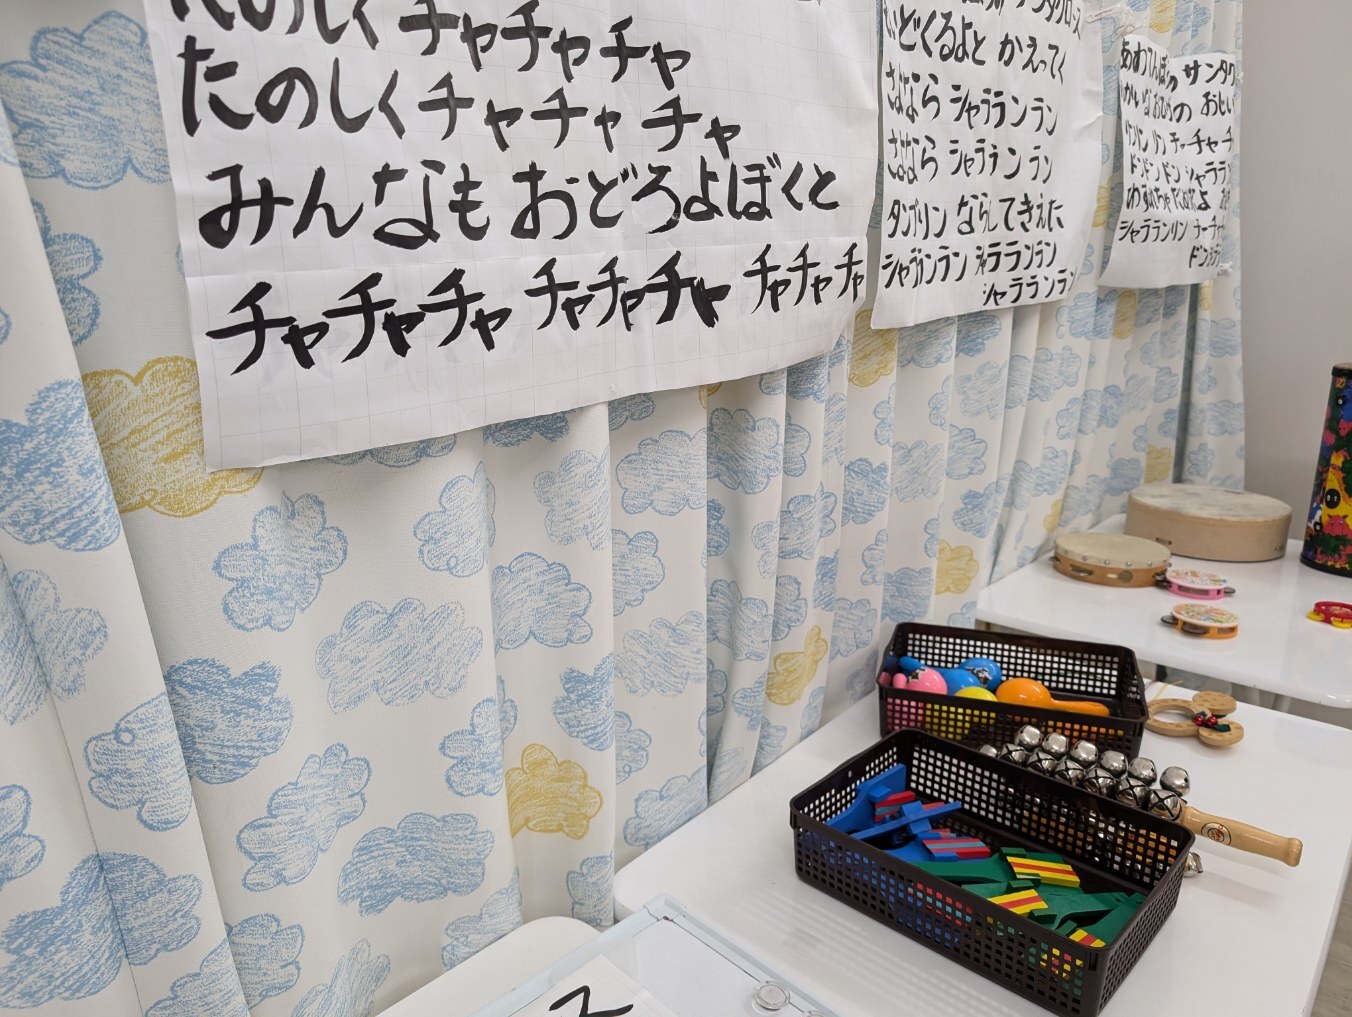 たのしく チャチャチャ
たのしく チャチャ チャ
みんなも おどろよぼくと
チャチャチャ チャチャチャ チャチャチャ
サンタクロース
いどくるよと かえってく
さよなら シャララン ラン
さよなら シャララン ラン
タンブリン ならしてきえた
シャララン ラン シャラランラン
シャラランラン
あわてんぼうの サンタク
ゆかいなおひげの おじい
リンリン リン チャチャチ
ドンドンドン シャララ
わすれちゃ だめだよ お
シャラランリン チャチャ
ドンシャラ
ス